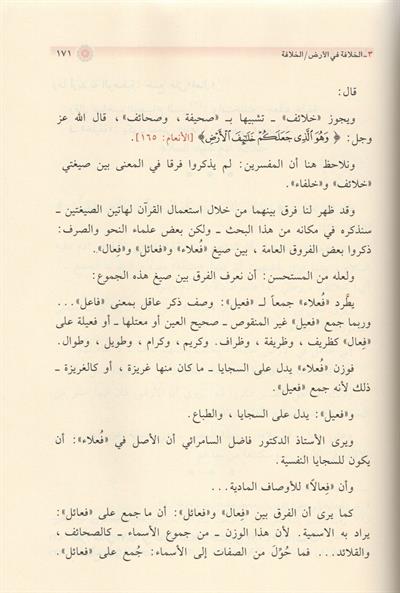 ٣ ـ الخلافة في الأرض/الخلافة
١٧١
قال:
ويجوز «خلائف» ـ تشبيها بـ «صحيفة ، وصحائف» ، قال الله عز
وجل: ﴿ وَهُوَ ٱلَّذِى جَعَلَكُمْ خَلَٰٓئِفَ ٱلْأَرْضِ﴾ [الأنعام: ١٦٥].
ونلاحظ هنا أن المفسرين: لم يذكروا فرقا في المعنى بين صيغتي
«خلائف» و«خلفاء».
وقد ظهر لنا فرق بينهما من خلال استعمال القرآن لهاتين الصيغتين ـ
سنذكره في مكانه من هذا البحث ـ ولكن بعض علماء النحو والصرف:
ذكروا بعض الفروق العامة ، بين صيغ «فُعلاء» و«فعائل» و«فِعال».
ولعله من المستحسن: أن نعرف الفرق بين صيغ هذه الجموع:
يطَّرد «فُعلاء» جمعاً لـ «فعيل»: وصف ذكر عاقل بمعنى «فاعل»...
وربما جمع «فعيل» غير المنقوص ـ صحيح العين أو معتلها ـ أو فعيلة على
«فِعال» كظريف ، وظريفة ، وظراف. وكريم ، وكرام ، وطويل ، وطوال.
فوزن «فُعلاء» يدل على السجايا ـ ما كان منها غريزة ، أو كالغريزة ـ
ذلك لأنه جمع «فعيل».
و«فعيل»: يدل على السجايا ، والطباع.
ويرى الأستاذ الدكتور فاضل السامرائي أن الأصل في «فُعلاء»: أن
يكون للسجايا النفسية.
وأن «فِعالاً» للأوصاف المادية...
كما يرى أن الفرق بين «فِعال» و«فعائل»: أن ما جمع على «فعائل»:
يراد به الاسمية. لأن هذا الوزن ـ من جموع الأسماء ـ كالصحائف ،
والقلائد... فما حُوِّل من الصفات إلى الأسماء: جُمع على «فعائل».